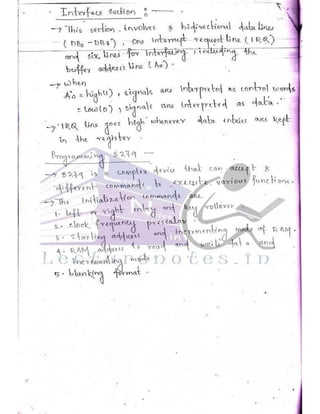 Interface section :-
→ This section involves 8 bidirectional data lines
(DB0 - DB7), One interrupt request line (IRQ)
and six lines for interfacing, including the
buffer address line (A0).
→ When
A0 = high(1), signals are interpreted as control words
= Low(0), signals are interpreted as data.
→ IRQ line goes high whenever data entries are kept
in the register.
Programming 8279 -
→ 8279 is complex device that can accept 8
different commands to execute various functions.
→ The Initialization commands are.
1. left or right entry and key rollover.
2. clock frequency prescalar
3. starting address and incrementing mode of RAM.
4. RAM address to read and write data and
incrementing mode
5. blanking format.
Lecturenotes.in